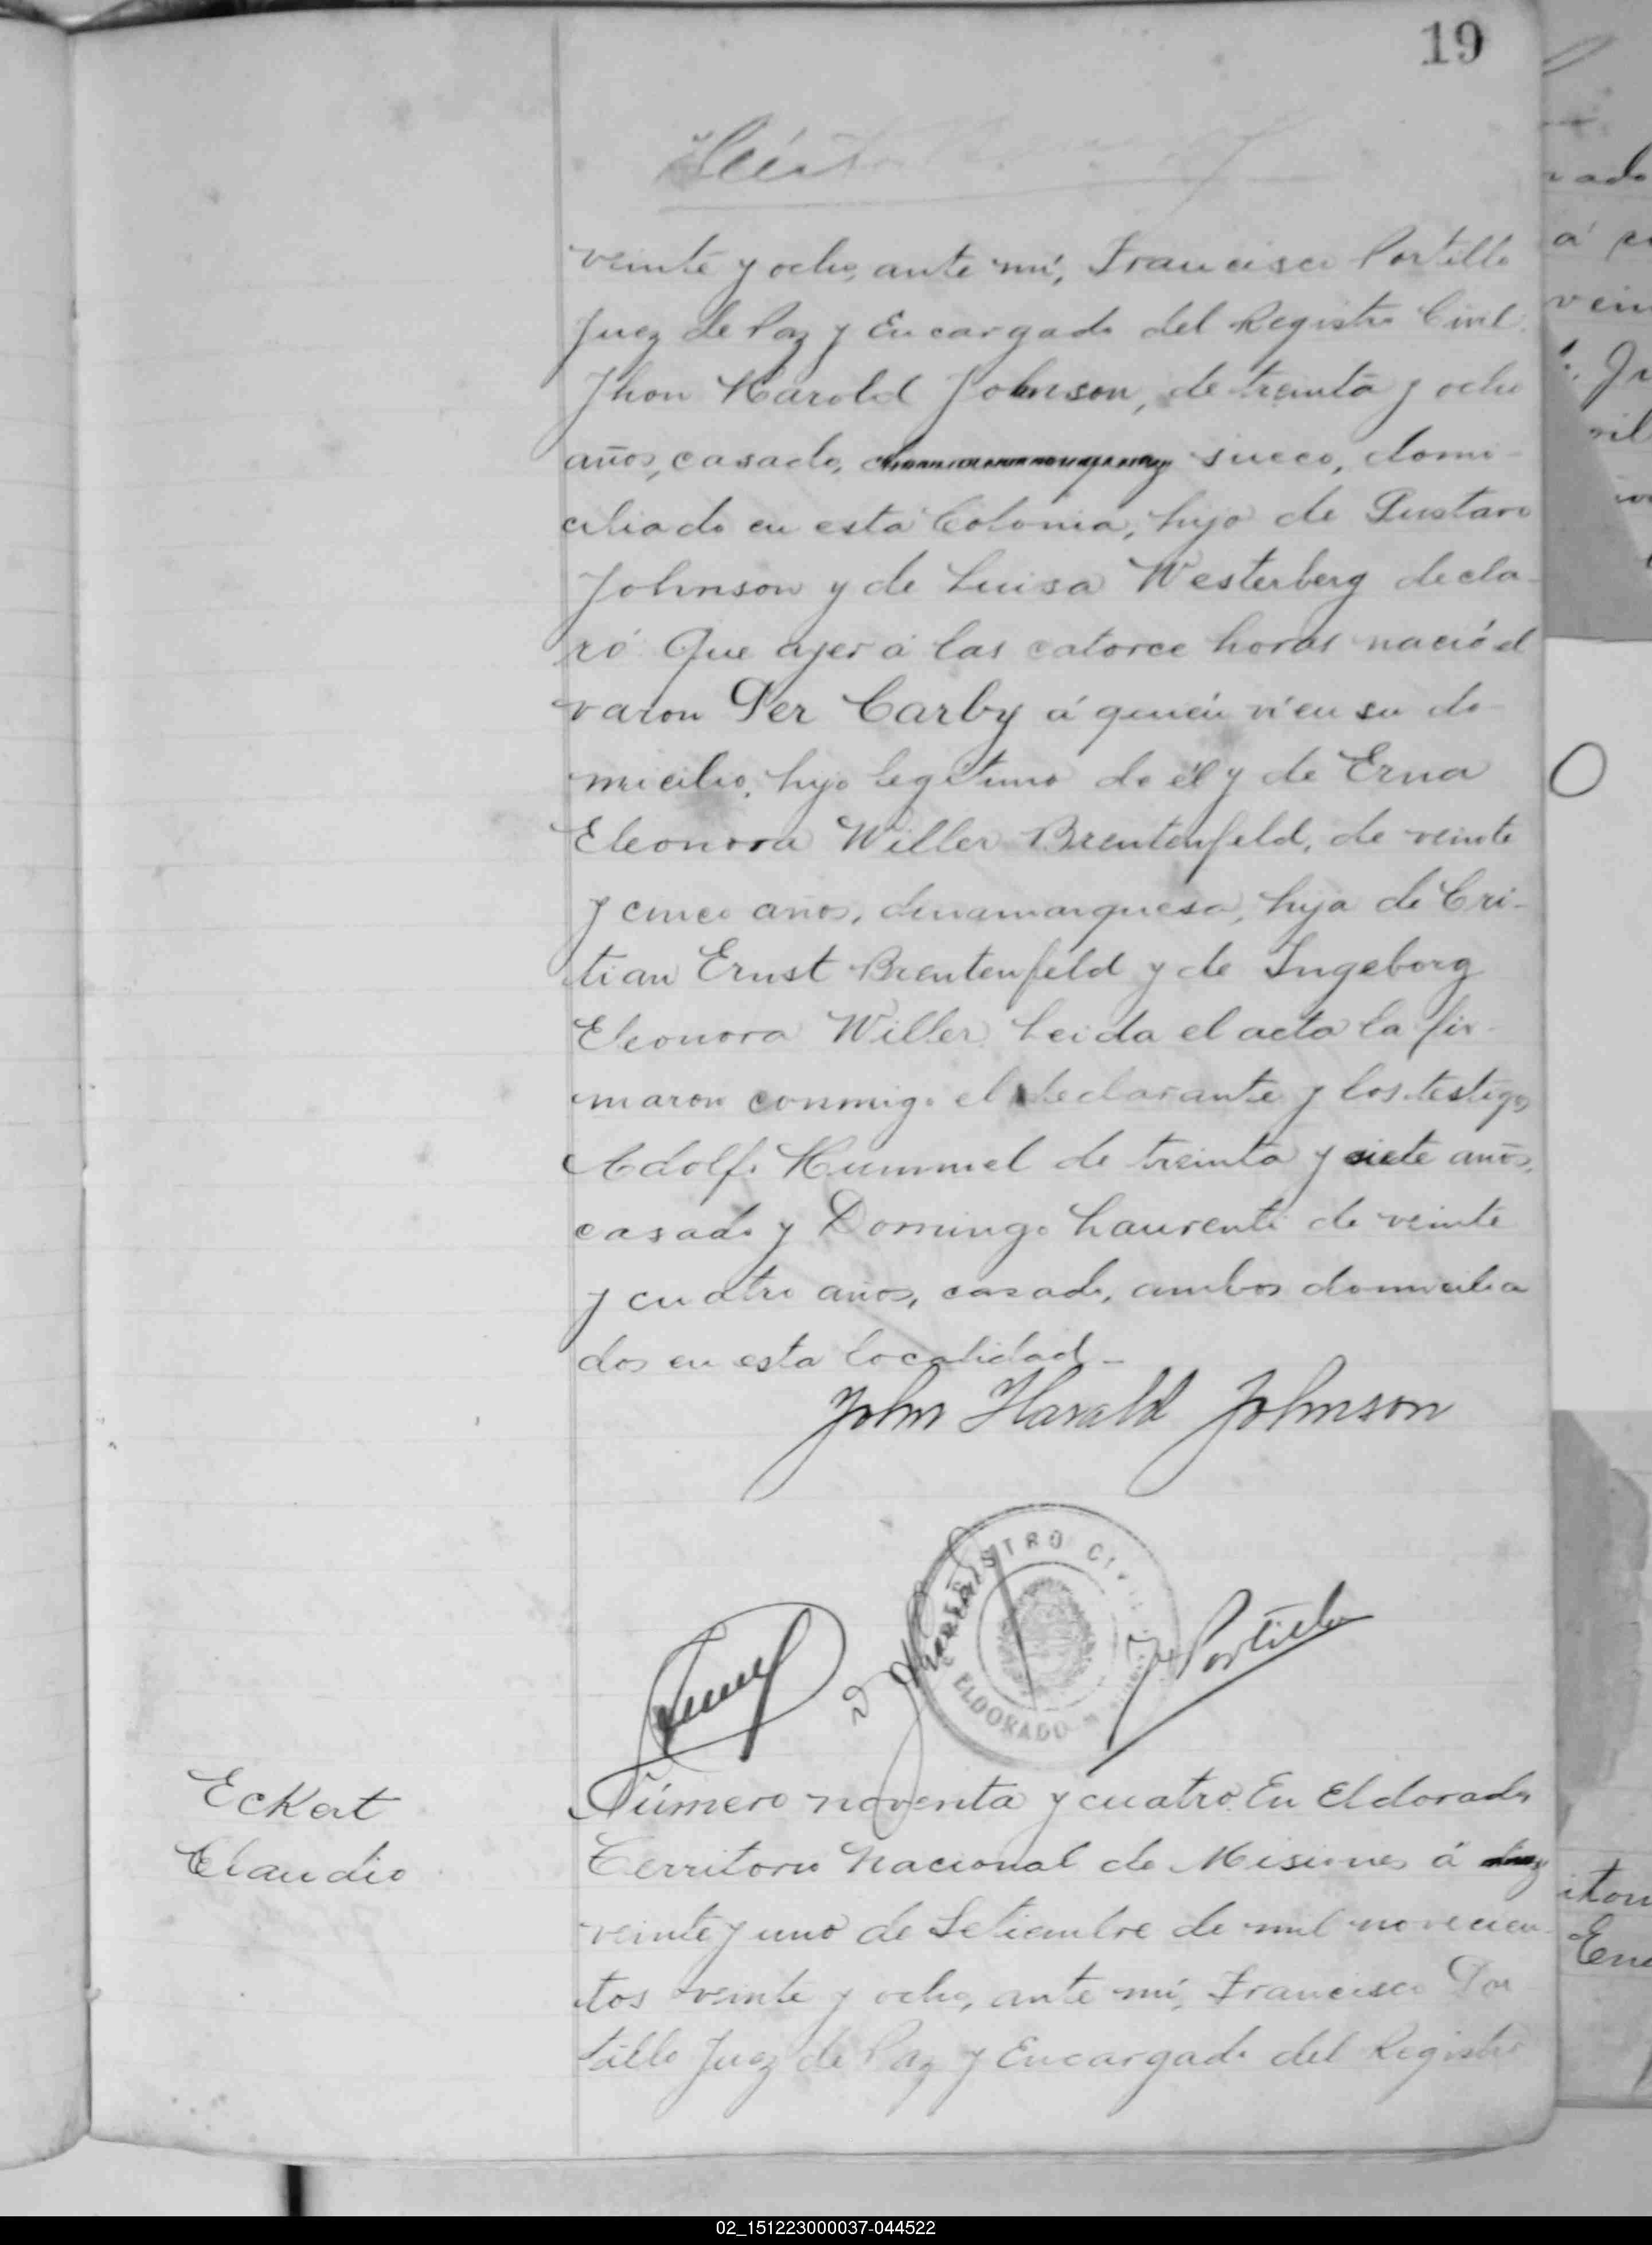 19
veinte y ocho, ante mí, Francisco Portillo
Juez de Paz y Encargado del Registro Civil
Jhon Harold Johnson, de treinta y ocho
años, casado, sueco, domi-
ciliado en esta Colonia, hijo de Gustavo
Johnson y de Luisa Westerberg decla-
ró: Que ayer á las catorce horas nació el
varon Per Carby á quién ví en su do-
micilio, hijo legítimo de él y de Erna
Eleonora Willer Brentenfeld, de veinte
y cinco años, dinamarquesa, hija de Cri-
tian Ernst Brentenfeld y de Ingeborg
Eleonora Willer. Leida el acta la fir-
maron conmigo el declarante y los testigos
Adolfo Hummel de treinta y siete años,
casado y Domingo Laurenti de veinte
y cuatro años, casado, ambos domicilia
dos en esta localidad_
John Harald Johnson
REGISTRO CIVIL
ELDORADO
F Portillo
Eckert
Claudio
Número noventa y cuatro. En Eldorado
Territorio Nacional de Misiones á
veinte y uno de Setiembre de mil novecien-
tos veinte y ocho, ante mí, Francisco Por
tillo Juez de Paz y Encargado del Registro
nado
á
vein
Ju
vil
iton
Ene
02_151223000037-044522